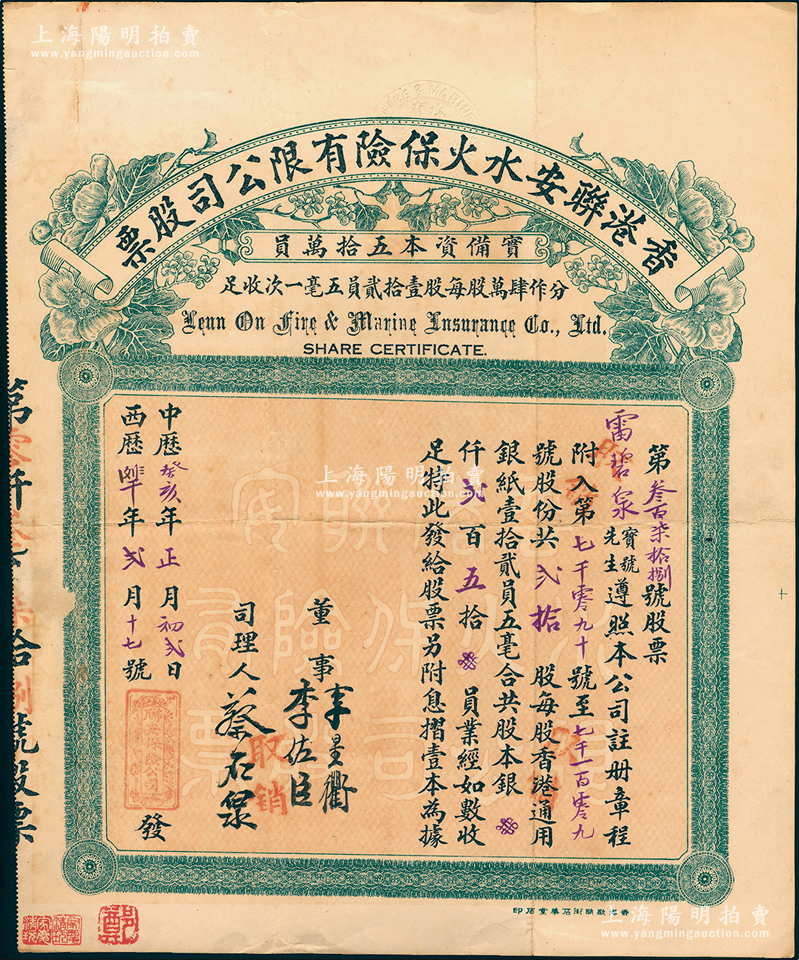 上海陽明拍賣
www.yangmingauction.com
香港聯安水火保險有限公司股票
實備資本五拾萬員
分作肆萬股每股壹拾貳員五毫一次收足
Leun On Fire & Marine Insurance Co., Ltd.
SHARE CERTIFICATE.
第叁百柒拾捌號股票
雷碧泉寶號先生遵照本公司註册章程
附入第七千零九十號至七千一百零九
號股份共弍拾股每股香港通用
銀紙壹拾貳員五毫合共股本銀
仟弍百五拾員業經如數收
足特此發給股票另附息摺壹本為據
董事李星衢
李佐臣
司理人蔡石泉
中歷癸亥年正月初弍日
西歷年弍月十七號
發
取銷
聯安保險公司
香港聯安水火保險有限公司股票
號股票
上海陽明拍賣
www.yangmingauction.com
上海陽明拍賣
www.yangmingauction.com